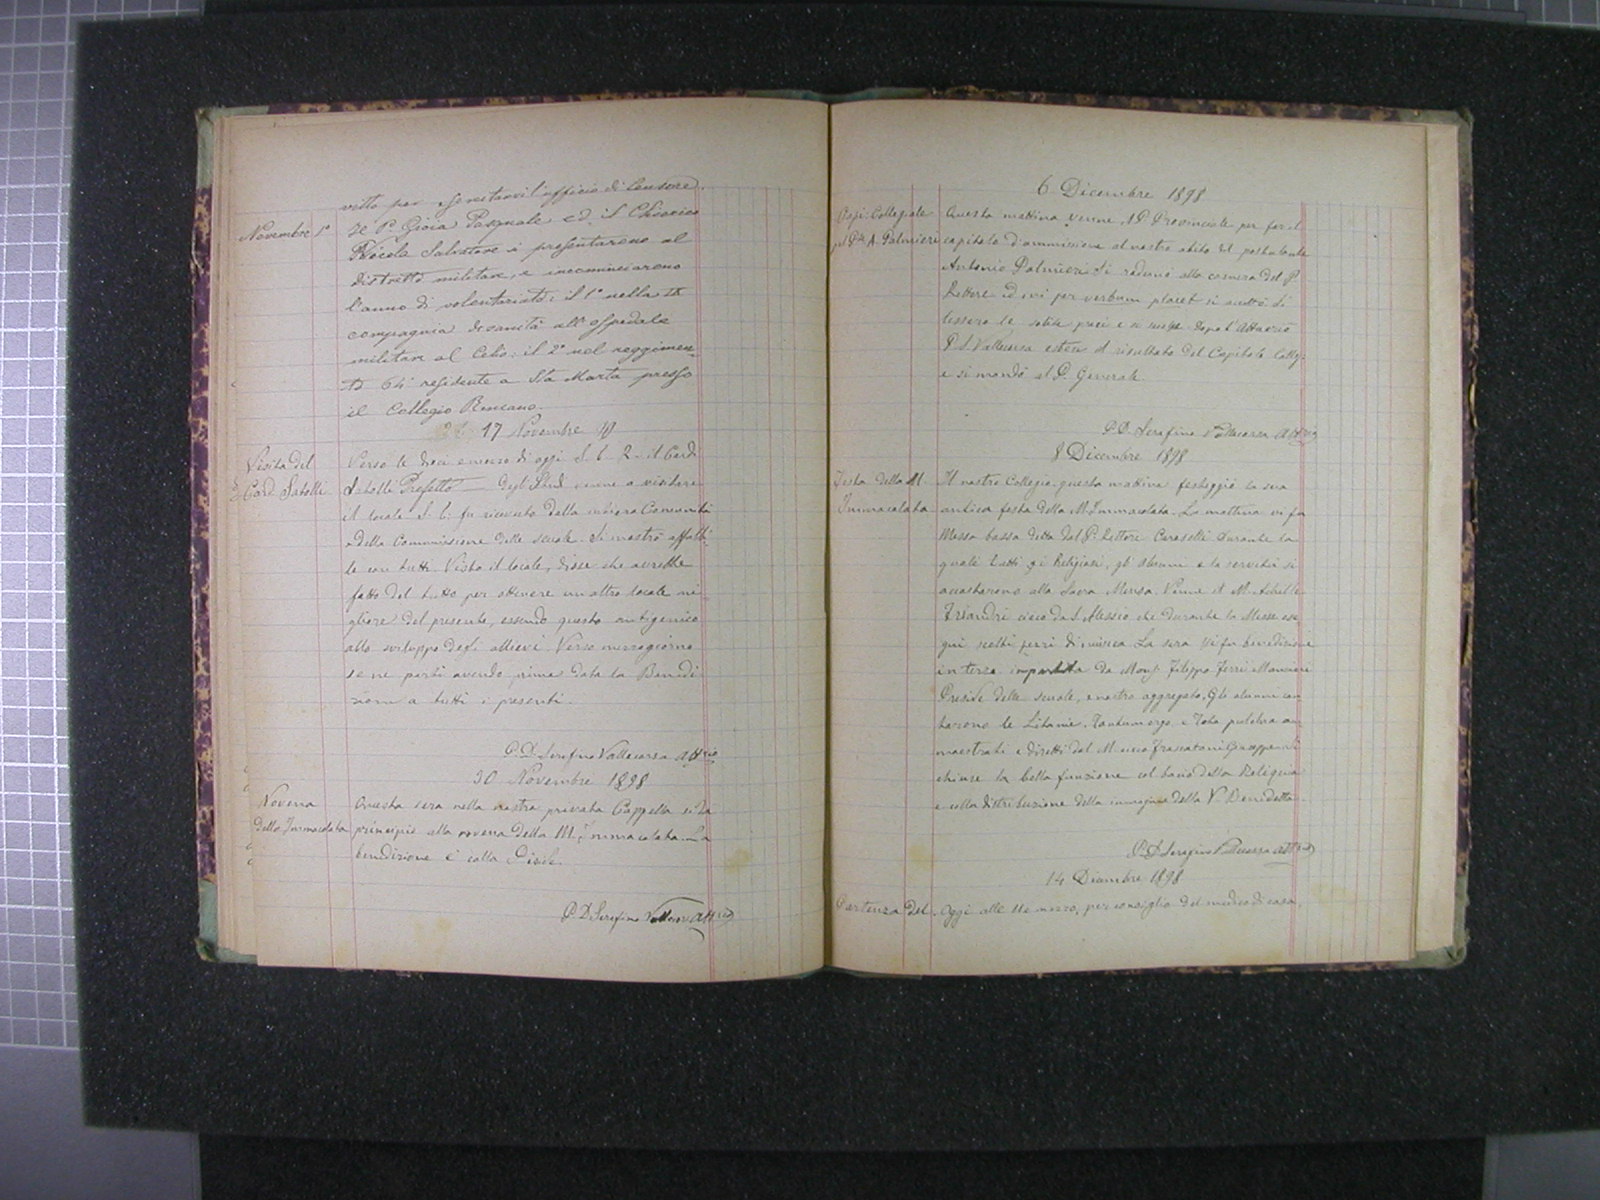 vitto per esercitarvi l'ufficio di Censore.
Novembre 1°
Il P. Gioia Pasquale ed il Chierico
Salvatore si presentarono al
distretto militare, e incominciarono
l'anno di volontariato: il 1° nella
compagnia di sanità all'ospedale
militare al Celio: il 2° nel reggimen-
to 64° residente a Sta Marta presso
il Collegio Romano.
17 Novembre
Visita del
Card. Satolli
Verso le dieci e mezzo di oggi S. E. R. il Card.
Satolli Prefetto degli Studi venne a visitare
il locale. S. E. fu ricevuto dalla intiera Comunità
e dalla Commissione delle scuole. Si mostrò affabi-
le con tutti. Visto il locale, disse che avrebbe
fatto del tutto per ottenere un altro locale mi-
gliore del presente, essendo questo antigienico
allo sviluppo degli allievi. Verso mezzogiorno
se ne partì avendo prima data la Benedi-
zione a tutti i presenti.
P. D. Serafino Vallecorsa Att.rio
30 Novembre 1898
Novena
dell'Immacolata
Questa sera nella nostra privata Cappella si dà
principio alla novena della M. Immacolata. La
benedizione è colla Pisside.
P. D. Serafino Vallecorsa Att.rio
6 Dicembre 1898
Cap. Collegiale
pel A. Palmieri
Questa mattina venne il P. Provinciale per far il
capitolo d'ammissione al nostro abito del postulante
Antonio Palmieri. Si radunò alla camera del P.
Rettore ed ivi per verbum placet si accettò. Si
lessero le solite preci e si dopo l'Attuario
P. S. Vallecorsa estese il risultato del Capitolo Colleg.
e si mandò al P. Generale.
P. D. Serafino Vallecorsa Att.rio
8 Dicembre 1898
Festa della M.
Immacolata
Il nostro Collegio questa mattina festeggiò la sua
antica festa della M. Immacolata. La mattina vi fu
Messa bassa detta dal P. Rettore Caroselli durante la
quale tutti i Religiosi, gli alunni e la servitù si
accostarono alla Sacra Mensa. Venne il M.
cieco da S. Alessio che durante la Messa ese-
guì scelti pezzi di musica. La sera vi fu benedizione
in terzo impartita da Mons. Filippo Ferri Mancini
Preside delle scuole, e nostro aggregato. Gli alunni can-
tarono le Litanie, Tantum ergo, e Tota pulchra am-
maestrati e diretti dal M. cieco Giuseppe. Si
chiuse la bella funzione col bacio della Reliquia
e colla distribuzione della immagine della V. Benedetta.
P. D. Serafino Vallecorsa Att.rio
14 Dicembre 1898
Partenza del
Oggi alle 11 e mezzo, per consiglio del medico di casa,